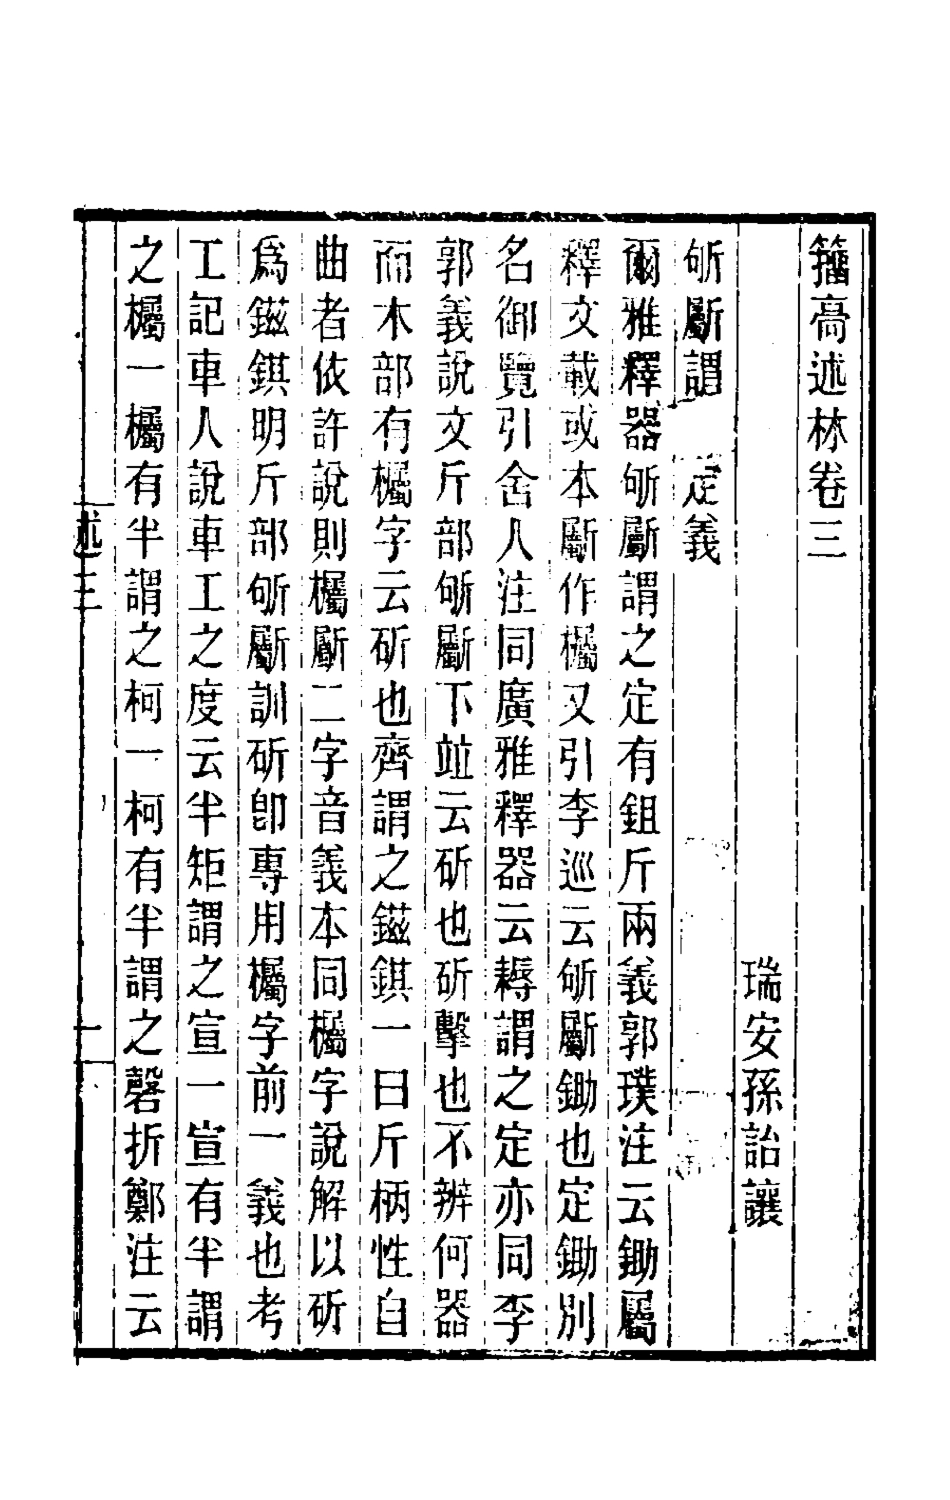 籀高述林卷三
瑞安孫詒讓
斪斸謂 定義
爾雅釋器斪斸謂之定有鉏斤兩義郭璞注云鋤屬
釋文載或本斸作欘又引李巡云斪斸鋤也定鋤別
名御覽引舍人注同廣雅釋器云耨謂之定亦同李
郭義說文斤部斪斸下竝云斫也斫擊也不辨何器
而木部有欘字云斫也齊謂之鎡錤一曰斤柄性自
曲者依許說則欘斸二字音義本同欘字說解以斫
爲鎡錤明斤部斪斸訓斫卽專用欘字前一義也考
工記車人說車工之度云半矩謂之宣一宣有半謂
之欘一欘有半謂之柯一柯有半謂之磬折鄭注云
述三
一